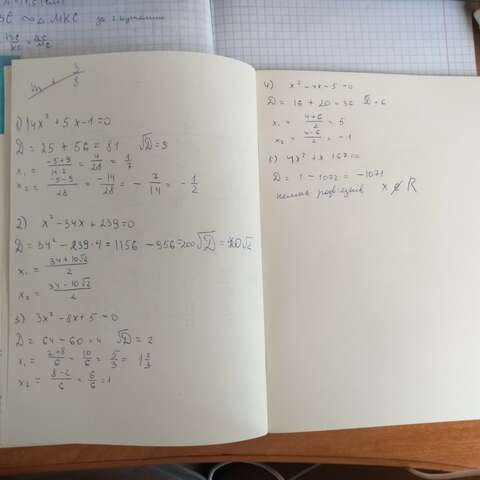 ВС ~ △ МКС за 2 кутами
1) 14x² + 5x - 1 = 0
D = 25 + 56 = 81 √D = 9
x₁ = (-5+9)/(14·2) = 4/28 = 1/7
x₂ = (-5-9)/28 = -14/28 = - 7/14 = - 1/2
2) x² - 34x + 239 = 0
D = 34² - 239·4 = 1156 - 956 = 200 √D = 10√2
x₁ = (34+10√2)/2
x₂ = (34-10√2)/2
3) 3x² - 8x + 5 = 0
D = 64 - 60 = 4 √D = 2
x₁ = (2+8)/6 = 10/6 = 5/3 = 1 2/3
x₂ = (8-2)/6 = 6/6 = 1
4) x² - 4x - 5 = 0
D = 16 + 20 = 36 √D = 6
x₁ = (4+6)/2 = 5
x₂ = (4-6)/2 = -1
5) 4x² + x + 67 = 0
D = 1 - 1072 = -1071
немає розв'язків x ∉ R